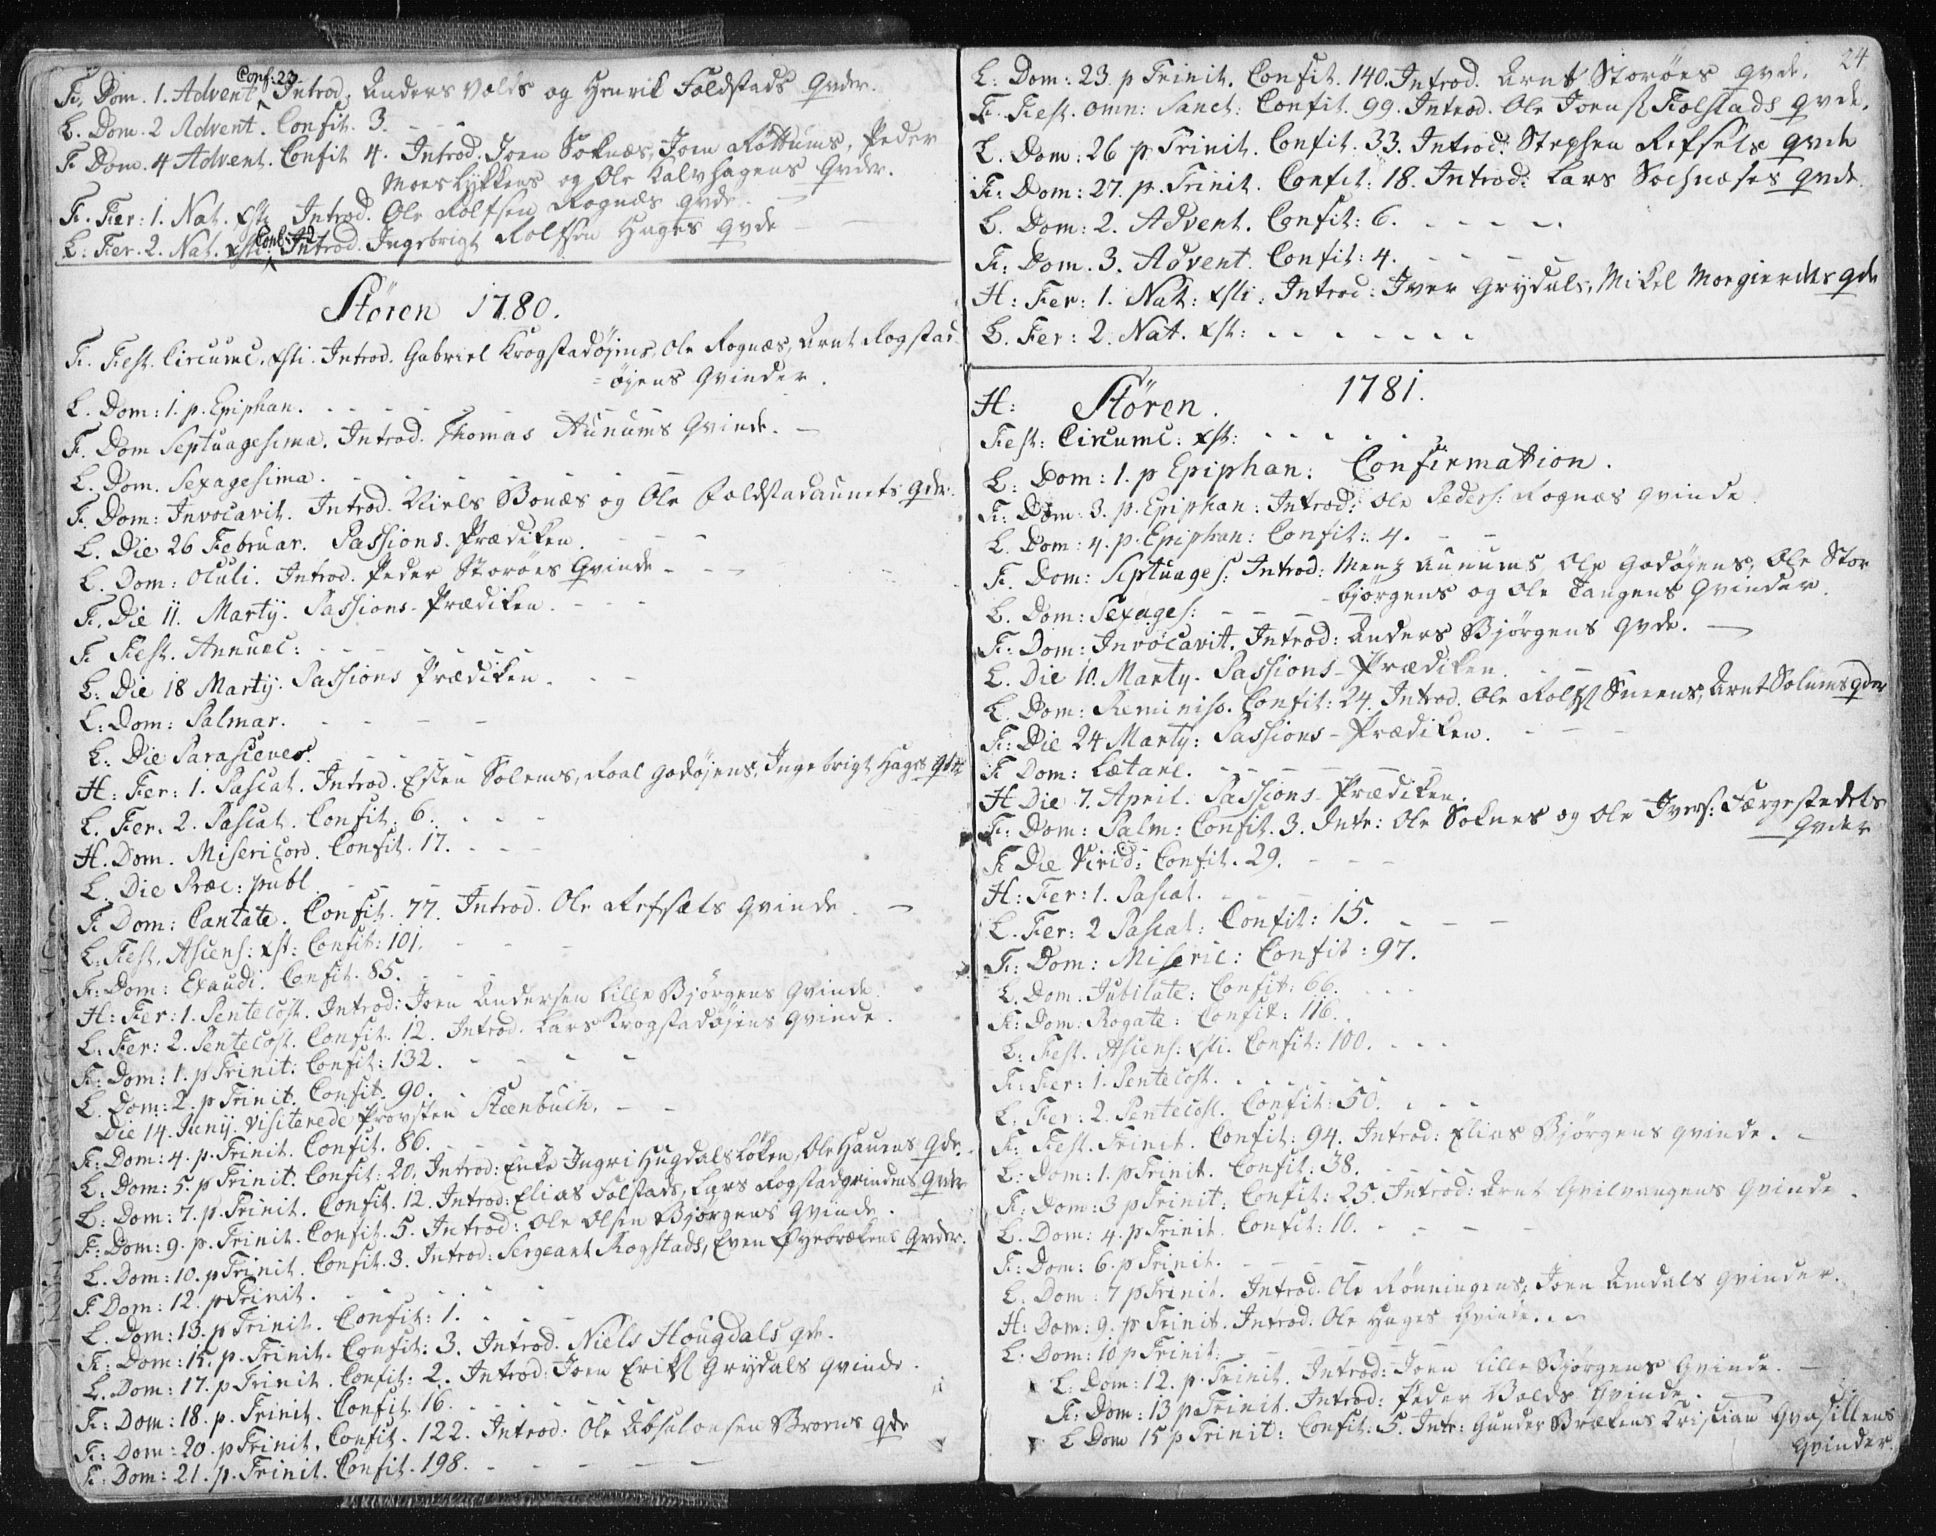 F. Dom. 1. Advent Conf: 23. Introd. Anders Volds og Henrik Foldstads Qvder.
L. Dom. 2 Advent. Confit. 3.
F. Dom. 4 Advent. Confit 4. Introd. Joen Soknæs, Joen Rottums, Peder
Moeslykkens og Ole Kalvhagens Qvder.
F. Fer: 1. Nat. Xsti Introd. Ole Rolfsen Rognæs Qvde
L: Fer. 2. Nat. Xsti. Introd. Ingebrigt Rolfsen Hages Qvde
Stören 1780.
F. Fest. Circumc. Xsti. Introd. Gabriel Krogstadøjens, Ole Rognæs, Arnt Rogstad
= øjens Qvinder.
L. Dom: 1. p. Epiphan.
F. Dom Septuagesima. Introd. Thomas Aunums Qvinde.
L. Dom. Sexagesima.
F. Dom: Invocavit. Introd. Niels Bonæs og Ole Foldstadaunets Qvdr.
L. Die 26 Februar. Passions-Prædiken.
L. Dom: Oculi. Introd. Peder Storøes Qvinde
F. Die 11. Martij. Passions-Prædiken.
F. Fest. Annunc:
L. Die 18 Martij. Passions Prædiken.
L: Dom: Palmar.
L. Die Parasceves.
H: Fer: 1. Pascat. Introd. Esten Solems, Roal Godøjens, Ingebrigt Hages Qvdr
L. Fer. 2. Pascat. Confit. 6.
H. Dom. Misericord. Confit. 17.
L. Die Præc: publ.
F. Dom: Cantate. Confit. 77. Introd. Ole Refsæts Qvinde.
L. Fest. Ascens: Xst: Confit: 101.
F: Dom: Exaudi. Confit. 85.
H: Fer: 1. Pentecost. Introd: Joen Andersen Lille Bjørgens Qvinde.
L. Fer: 2. Pentecost. Confit. 12. Introd. Lars Krogstadøjens Qvinde.
F: Dom: 1. p Trinit: Confit: 132.
L. Dom: 2. p Trinit. Confit. 90.
Die 14. Junij. Visiterede Provsten Steenbuch.
F: Dom: 4. p. Trinit. Confit. 86.
L. Dom: 5. p Trinit. Confit: 20. Introd: Enke Ingri Hugdalsløken, Ole Hauens Qvdr.
L: Dom: 7. p. Trinit. Confit. 12. Introd: Elias Folstads, Lars Rogstadgrindens Qvder
F: Dom: 9. p. Trinit. Confit. 5. Introd: Ole Olsen Bjørgens Qvinde.
L. Dom: 10. p Trinit. Confit. 3. Introd: Sergeant Rogstads, Even Øyebrækens Qvder.
F. Dom: 12. p Trinit.
L. Dom: 13. p Trinit. Confit: 1.
F: Dom: 15. p. Trinit. Confit: 3. Introd. Niels Hougdals Qde.
L. Dom: 17. p Trinit. Confit: 2. Introd: Joen Eriks. Grydals Qvinde.
F: Dom: 18. p. Trinit. Confit. 16.
F: Dom: 20. p Trinit. Confit. 122. Introd: Ole Absalonsen Broens Qde
F: Dom: 21. p. Trinit. Confit. 198.
24
L: Dom: 23. p Trinit. Confit. 140. Introd. Arnt Storøes Qvde.
F. Fest. omn: Sanct: Confit. 99. Introd. Ole Joens. Folstads Qvde.
L. Dom: 26 p Trinit. Confit. 33. Introd: Stephen Refsets Qvde
F: Dom: 27. p. Trinit. Confit: 18. Introd: Lars Socnæses Qvde
L. Dom: 2. Advent. Confit: 6.
F: Dom. 3. Advent. Confit: 4.
H: Fer: 1. Nat: Xsti: Introd: Iver Grydals, Mikel Morgierdets Qdr
L. Fer: 2. Nat. Xst:
H: Stören. 1781.
Fest: Circumc: Xst:
L: Dom: 1. p Epiphan: Confirmation.
F: Dom: 3. p. Epiphan: Introd: Ole Peders: Rognæs Qvinde.
L. Dom: 4. p. Epiphan: Confit: 4.
F. Dom: Septuages: Introd: Menz Aunums, Ole Godøjens, Ole Stor
-bjørgens og Ole Tangens Qvinder.
L. Dom: Sexages:
F: Dom: Invocavit. Introd: Anders Bjørgens Qvde.
L. Die 10. Martij. Passions-Prædiken.
L. Dom: Reminisc. Confit: 24. Introd. Ole Rolfs. Sneens, Arnt Solems Qvder
F: Die 24 Martij: Passions-Prædiken.
F Dom: Lætare.
H Die 7. April. Passions-Prædiken.
F: Dom: Palm: Confit. 3. Intr: Ole Soknes og Ole Ivers: Færgestedets
Qvder
F Die Virid: Confit. 29.
H: Fer: 1. Pascat.
L. Fer: 2 Pascat: Confit: 15.
F: Dom: Miseric: Confit: 97.
L. Dom. Jubilate: Confit: 66.
F: Dom. Rogate: Confit: 116.
L: Fest. Ascens: Xsti. Confit: 100.
F: Fer: 1. Pentecost.
L. Fer: 2. Pentecost. Confit: 50.
F: Fest. Trinit. Confit: 94. Introd: Elias Bjørgens Qvinde.
L: Dom: 1. p Trinit. Confit: 38.
F: Dom: 3 p Trinit: Confit: 25. Introd: Arnt Hvilvangens Qvinde.
L. Dom: 4. p Trinit. Confit: 10.
F: Dom: 6. p Trinit.
L: Dom: 7 p Trinit. Introd. Ole Rönningens, Joen Amdals Qvinder.
H: Dom: 9. p Trinit. Introd. Ole Hages Qvinde.
L: Dom: 10 p Trinit:
L: Dom: 12. p. Trinit. Introd: Joen Lille Bjørgens Qvinde.
F: Dom: 13 p Trinit. Introd: Peder Volds Qvinde.
L Dom 15 p Trinit: Confit: 5. Intr: Gunder Brækens Cristian Qvasillens
Qvinder.